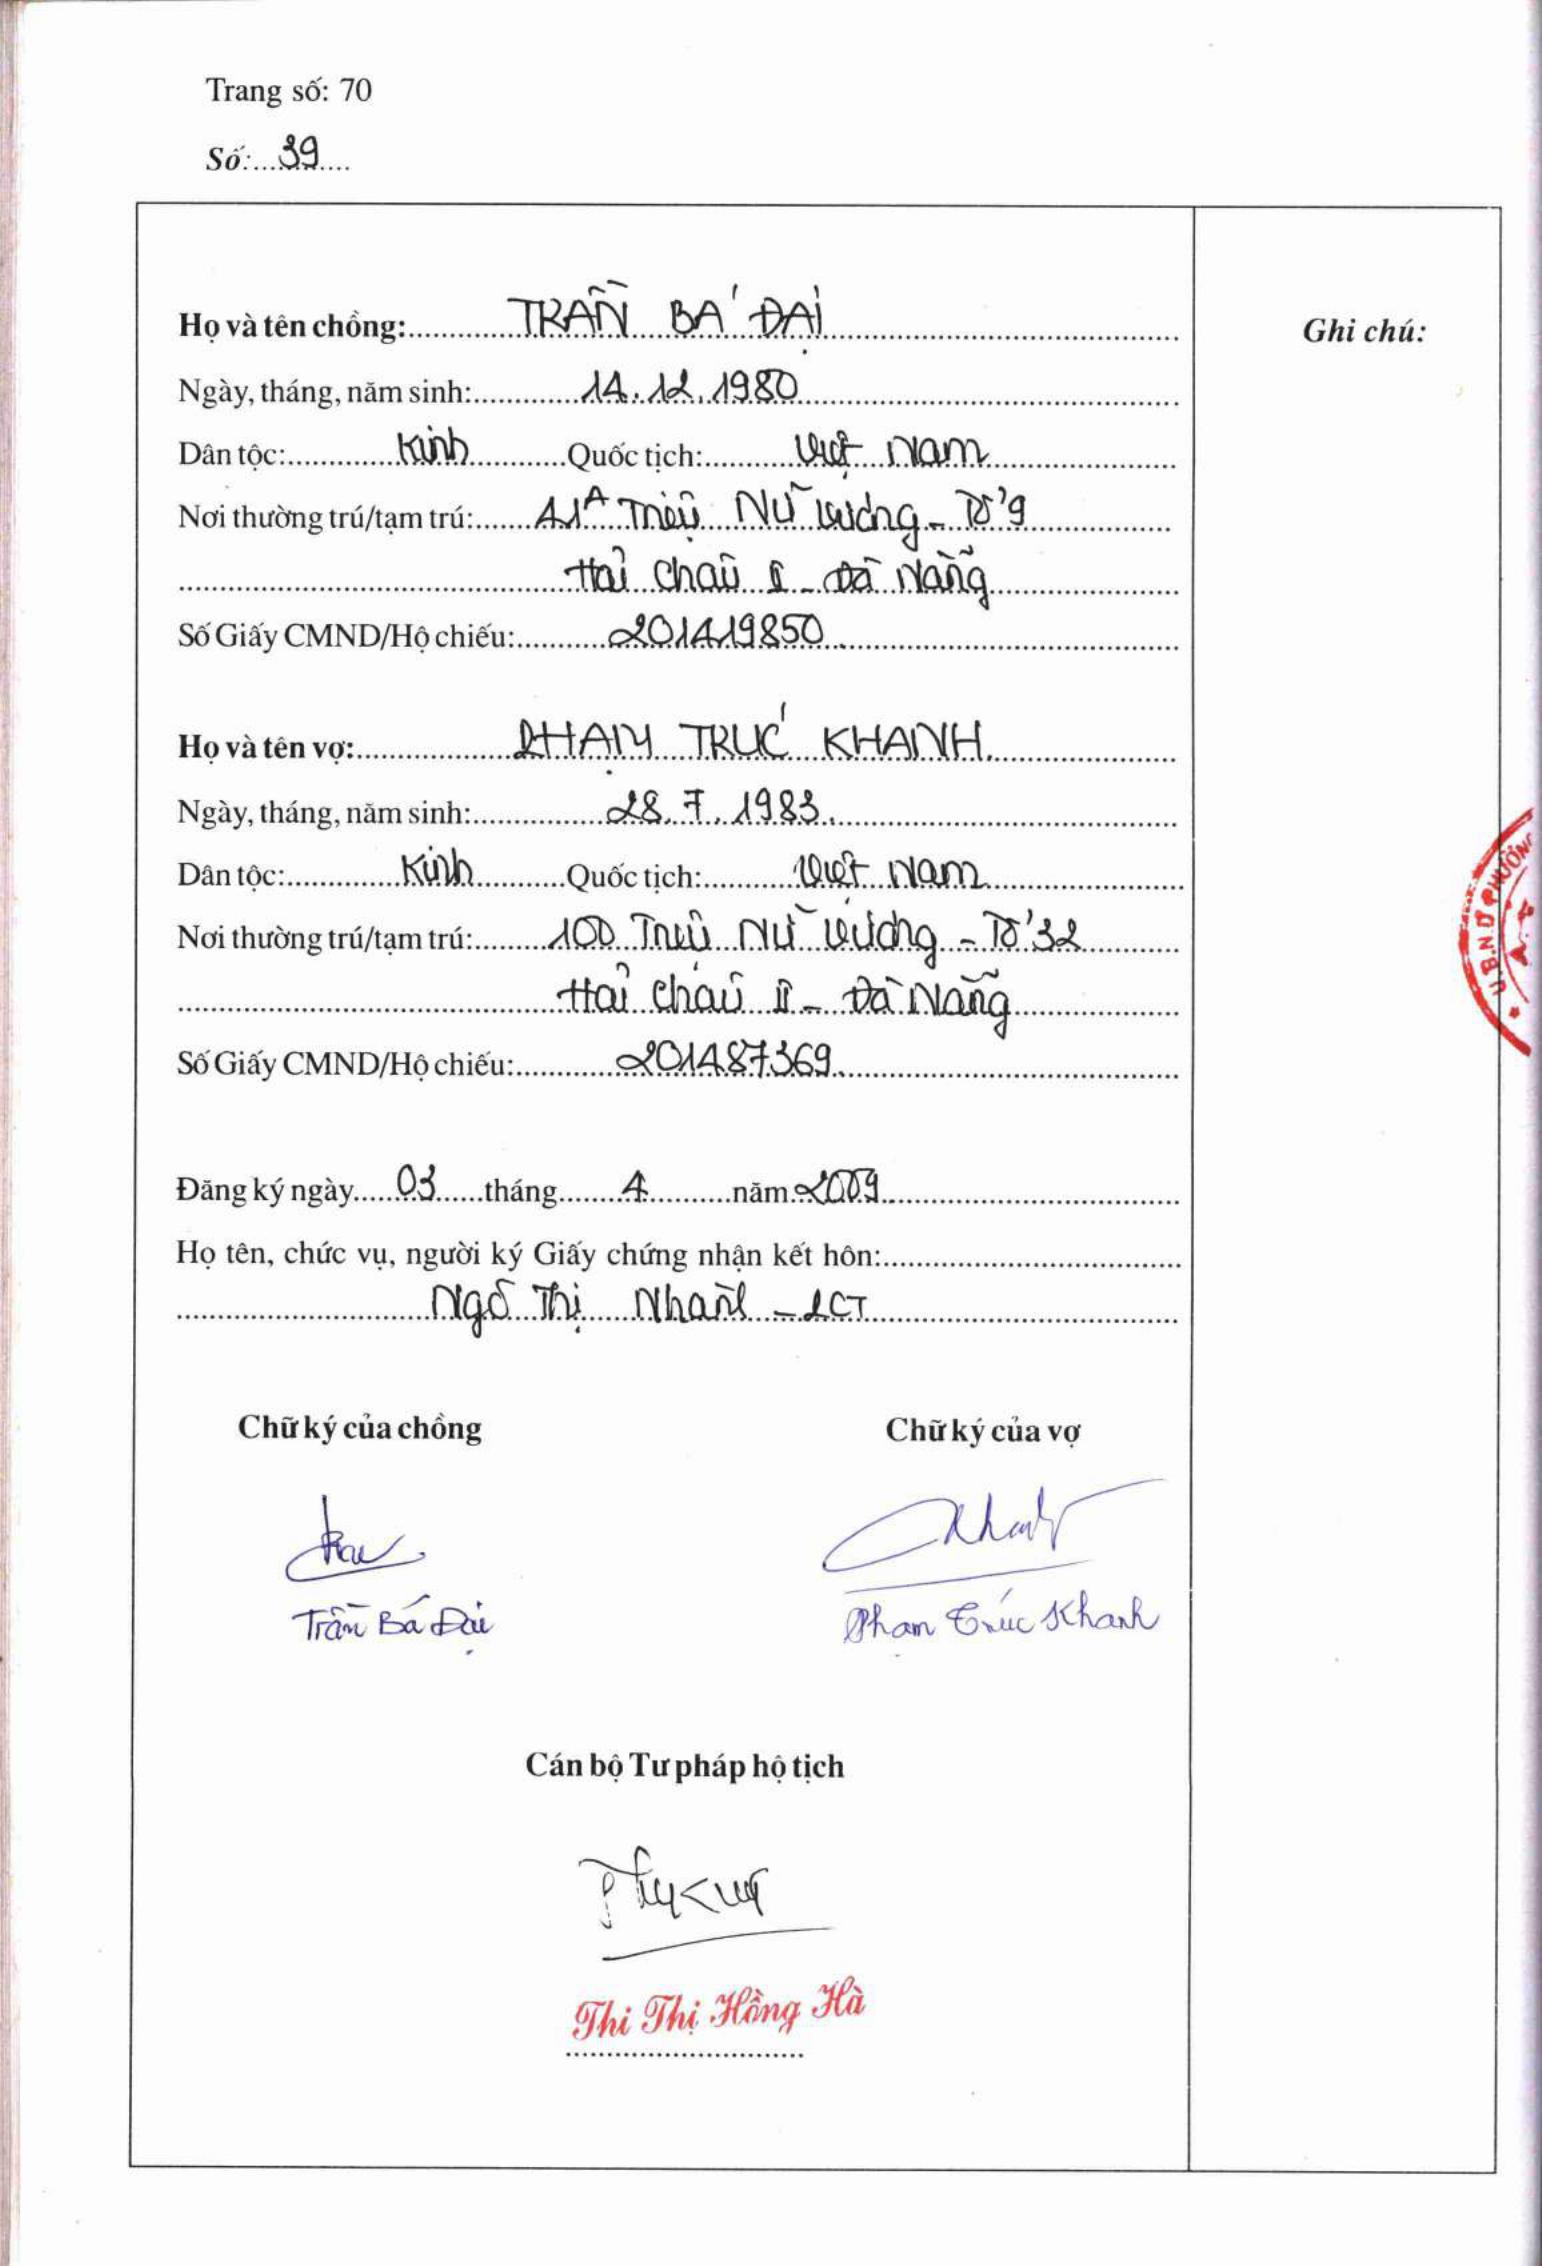 Trang số: 70
Số: 39
Họ và tên chồng: TRẦN BÁ ĐẠI
Ghi chú:
Ngày, tháng, năm sinh: 14.12.1980
Dân tộc: Kinh Quốc tịch: Việt Nam
Nơi thường trú/tạm trú: 41A Triệu Nữ Vương - Tổ 9
Hải Châu II - Đà Nẵng
Số Giấy CMND/Hộ chiếu: 201419850
Họ và tên vợ: PHẠM TRÚC KHANH
Ngày, tháng, năm sinh: 28.7.1983
Dân tộc: Kinh Quốc tịch: Việt Nam
Nơi thường trú/tạm trú: 100 Triệu Nữ Vương - Tổ 32
Hải Châu II - Đà Nẵng
Số Giấy CMND/Hộ chiếu: 201487369
U.B.N.D PHƯỜNG
Đăng ký ngày 03 tháng 4 năm 2009
Họ tên, chức vụ, người ký Giấy chứng nhận kết hôn:
Ngô Thị Nhàn - PCT
Chữ ký của chồng Chữ ký của vợ
Trần Bá Đại Phạm Trúc Khanh
Cán bộ Tư pháp hộ tịch
Thi Thị Hồng Hà